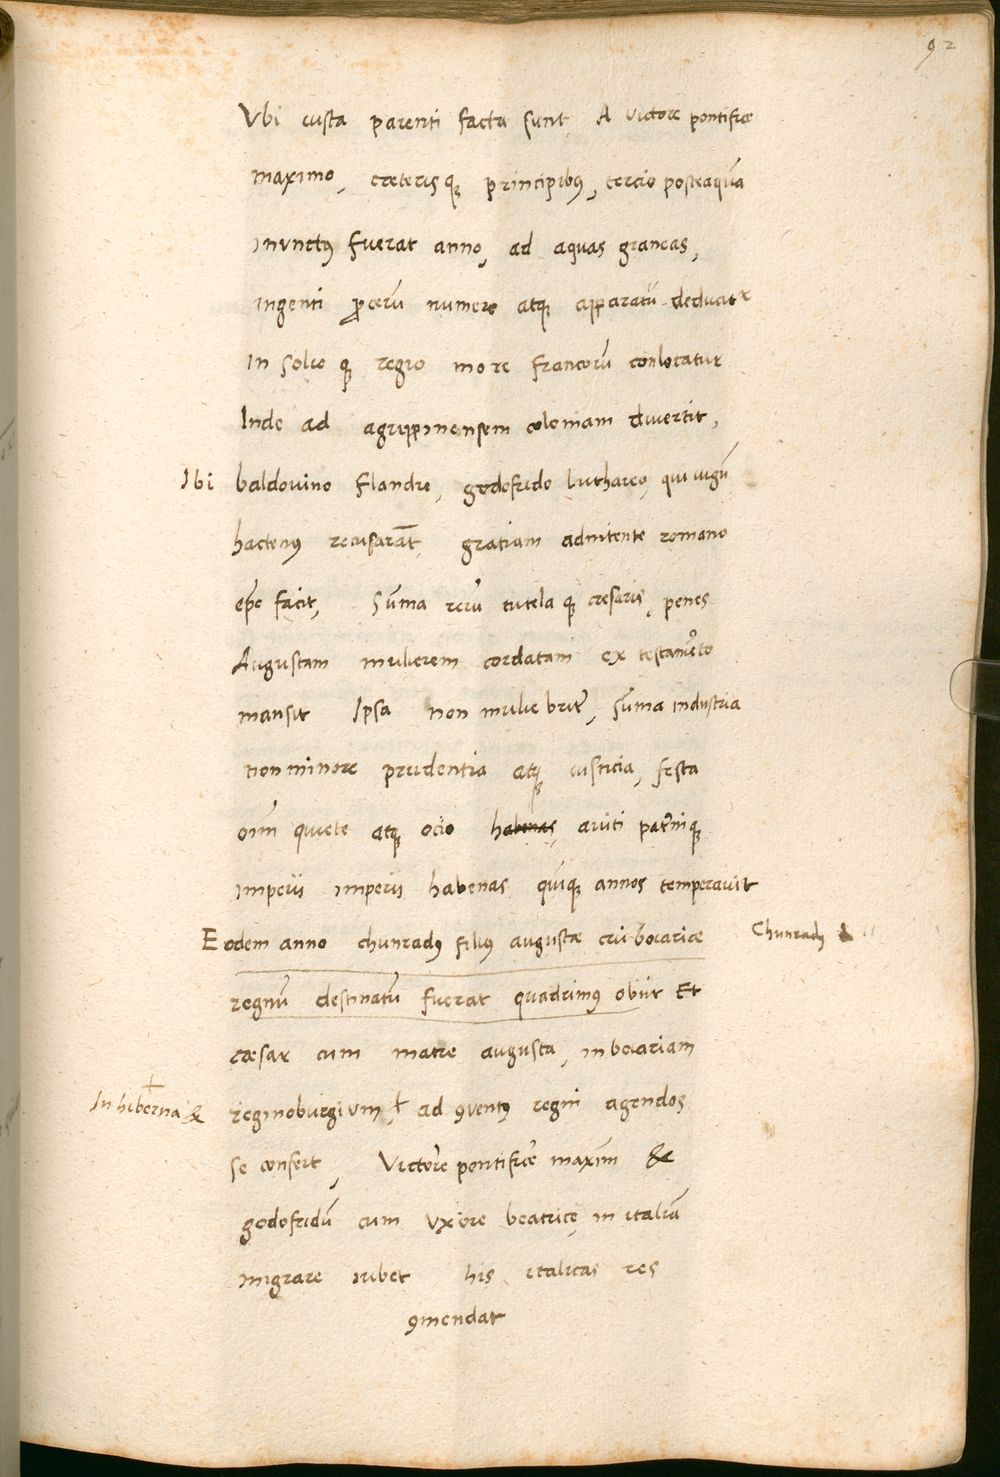 92
Vbi iusta parenti facta sunt, A victore pontifice
maximo, cæterisq; principibus, tercio posteaquã
inunctus fuerat anno, ad aquas graneas,
ingenti procerũ numero atq; apparatũ deducit᷑
in solio q; regio more francorũ conlocatur
Inde ad agrippinensem coloniam divertit,
Ibi baldovino Flandre, godofrido luthareo, qui iugũ
hactenus recusarãt, gratiam adnitente romano
epõ facit, Sũma rerũ tutela q; cæsaris, penes
Augustam mulierem cordatam ex testamẽto
mansit Ipsa non muliebriter, sũma industria
non minore prudentia atq; iusticia, festa
oĩm quiete atq; ocio habenas, aviti paterniq;
imperii imperii habenas quĩq; annos temperavit
Eodem anno chunradus filius augustæ cui boiariæ
Chunradus
regnũ destinatũ fuerat quadrimus obiit Et
cæsar cum matre augusta, in boiariam
reginoburgium, ꝉ ad ꝯventus regni agendos
In hiberna &
se confert, Victorẽ pontificẽ maxim̃ &
godofridũ cum uxore beatrice, in italiã
migrare iubet his italicas res
ꝯmendat